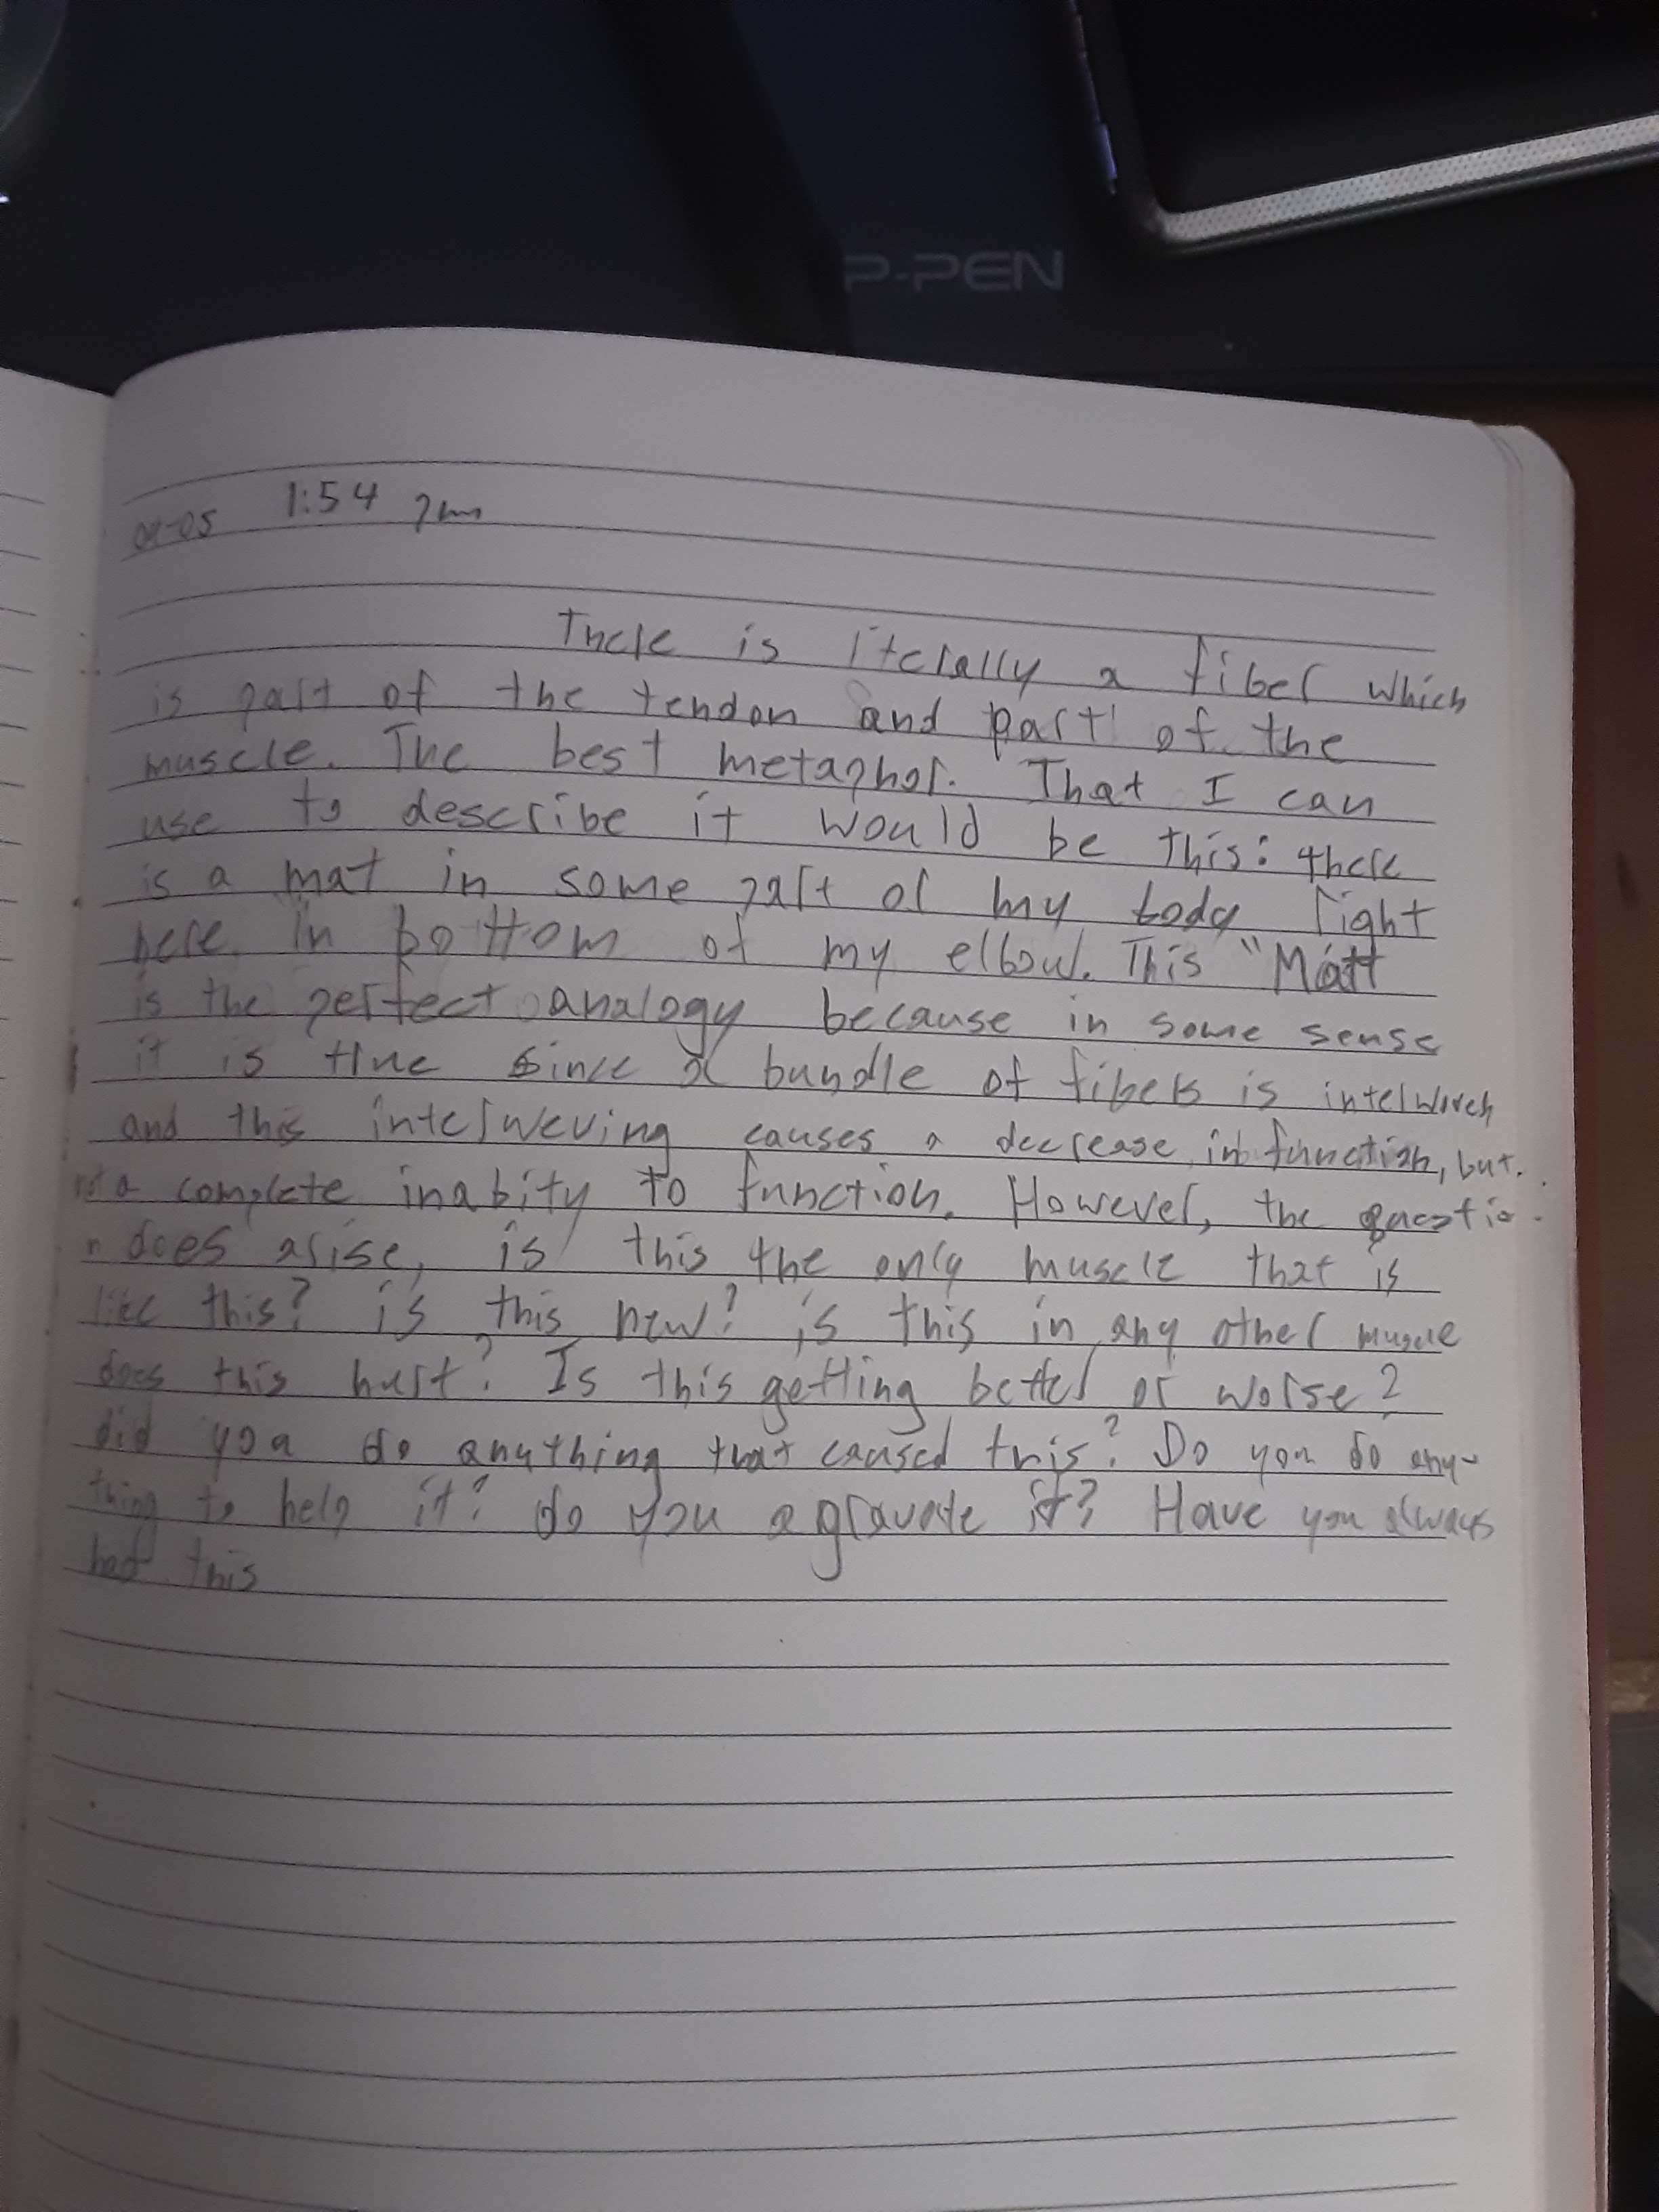 P-PEN
1:54 pm
There is literally a fiber which
is part of the tendon and part of the
muscle. The best metaphor. That I can
use to describe it would be this: there
is a mat in some part of my body right
here in bottom of my elbow. This "Matt
is the perfect analogy because in some sense
it is true since a bundle of fibers is interwoven
and this interweving causes a decrease in function, but
not a complete inabity to function. However, the questio
n does arise, is this the only muscle that is
like this? is this new? is this in any other muscle
does this hurt? Is this getting better or worse?
did you do anything that caused this? Do you do any-
thing to help it? do you agravate it? Have you always
had this